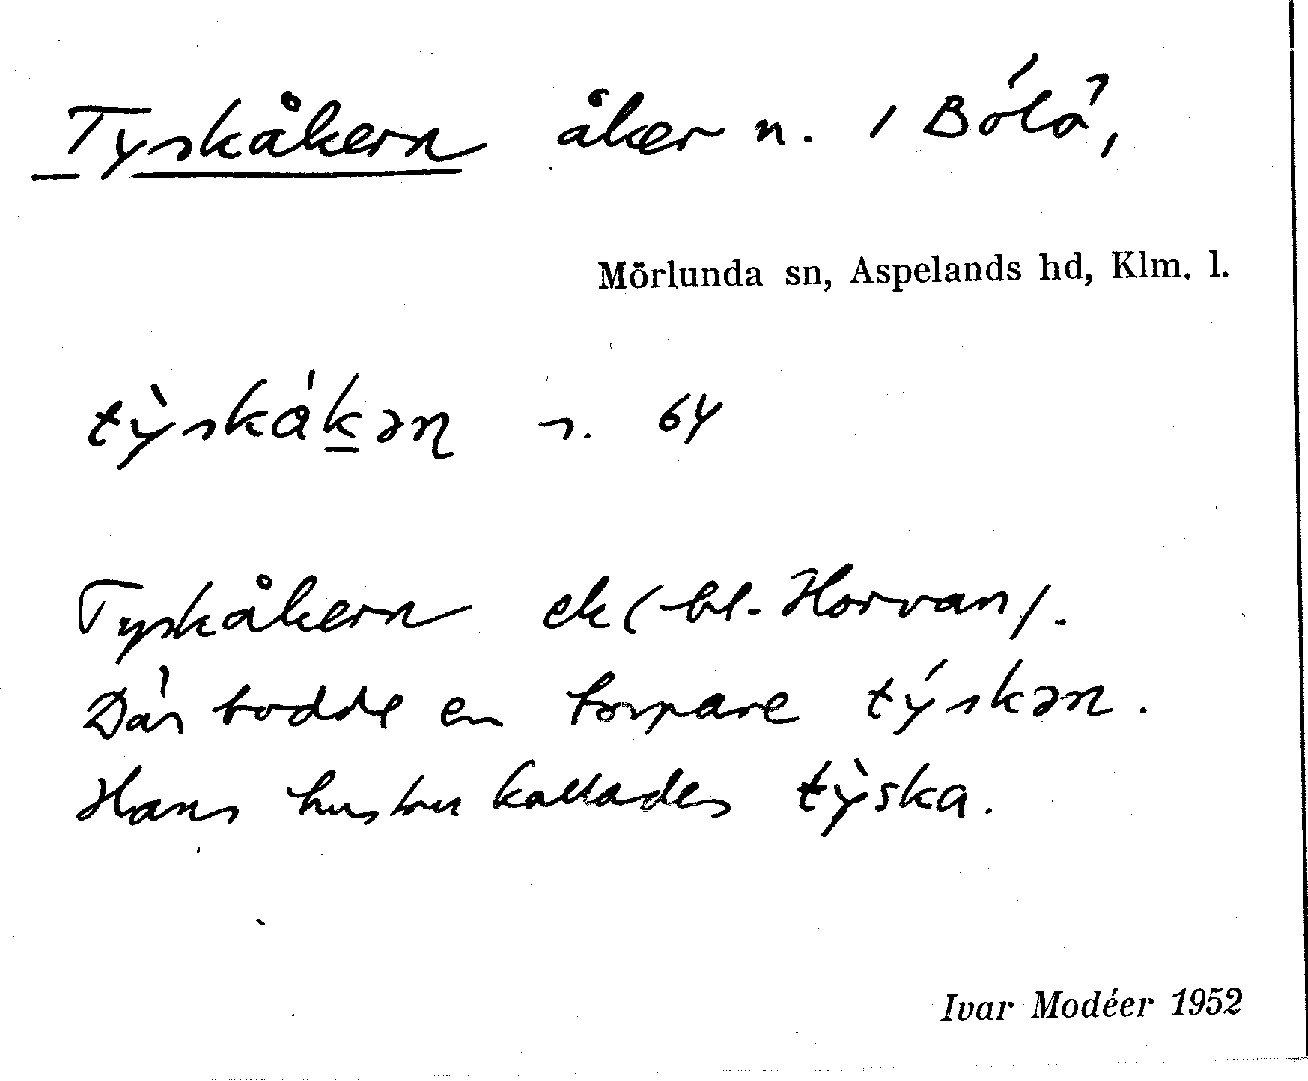 Tyskåkern åker n. i Bölö,
Mörlunda sn, Aspelands hd, Klm. l.
tỳskák̲ən s. 64
Tyskåkern ek (bl. Horvan).
Där bodde en torpare týskən.
Hans hustru kallades tỳska.
Ivar Modéer 1952